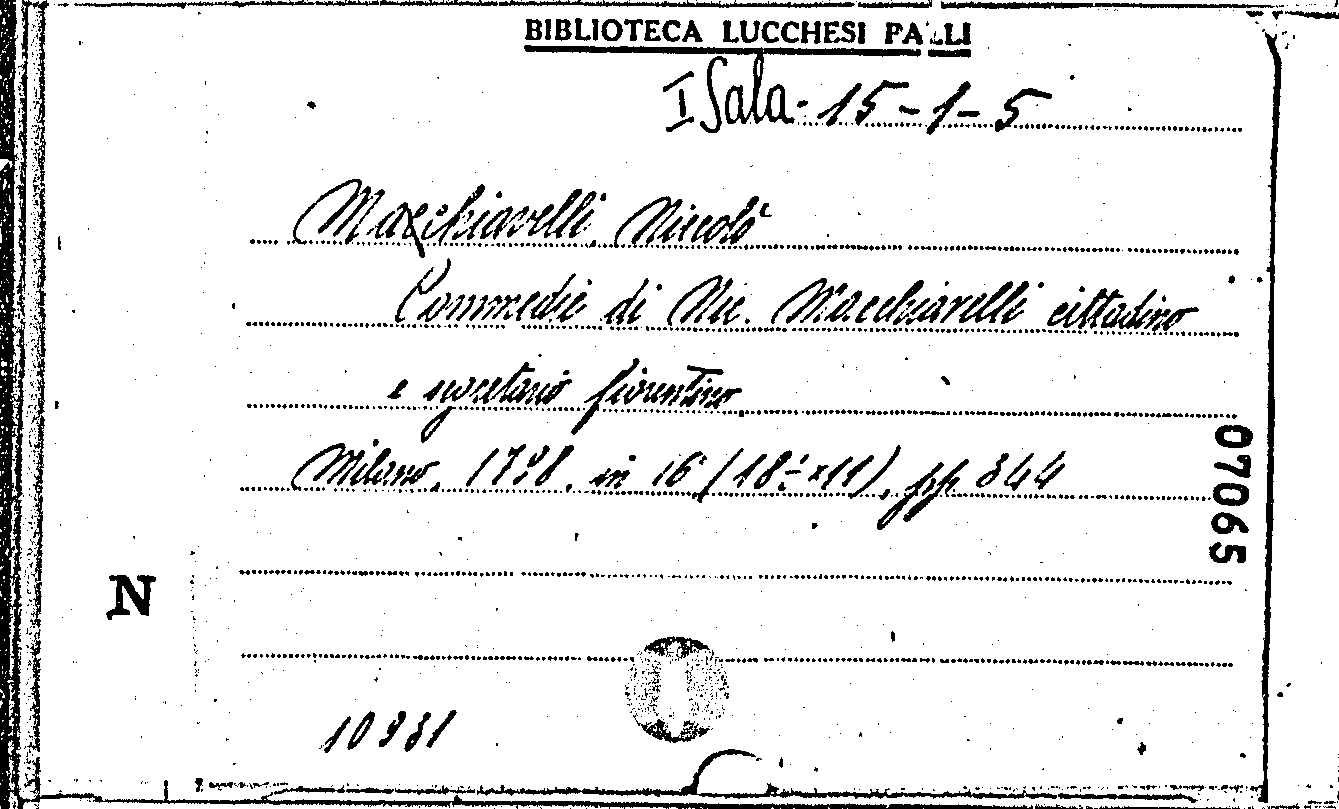 BIBLIOTECA LUCCHESI PALLI
I Sala - 15-1-5
Macchiavelli, Niccolò
Commedie di Nic. Macchiavelli cittadino
e segretario fiorentino.
Milano, in 16° (18 x 11), pp 344
07065
N
10931